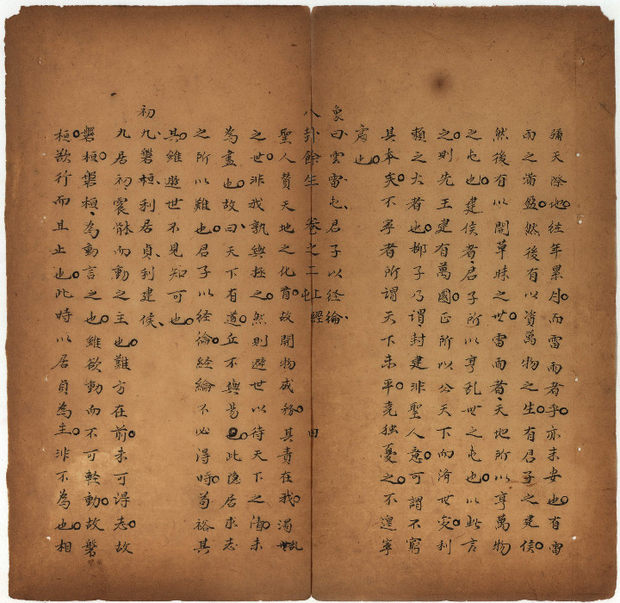 彌天際地往年累月而雷雨者乎亦未安也有雷
雨之滿盈然後有以資萬物之生有君子之建侯
然後有以開草昧之世雷雨者天地所以亨萬物
之屯也建侯者君子所以亨亂世之屯也以此言
之則先王建有萬國正所以公天下而濟世安利
賴之大者也柳子乃謂封建非聖人意可謂不窮
其本矣不寧者所謂天下未平堯獨憂之不遑寧
處也
象曰雲雷屯君子以經綸
八卦餘生 卷之二 屯 上經 四
聖人贊天地之化育故開物成務其責在我濁亂
之世非我孰與拯之然則避世以待天下之清未
為盡也故曰天下有道丘不與易也此隱居求志
之所以難也君子以經綸經綸不必得時苟裕其
具雖遯世不見知可也
初九磐桓利居貞利建侯
九居初震體而動之主也難方在前未可得志故
磐桓磐桓為動言之也雖欲動而不可輕動故磐
桓欲行而且止也此時以居貞為主非不為也相